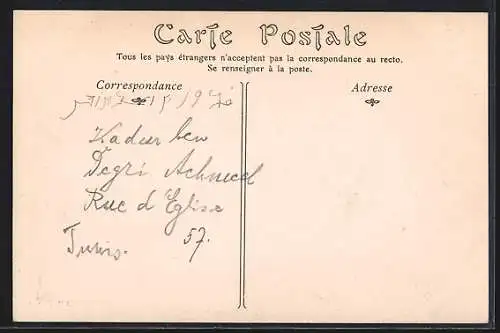 Carte Postale
Tous les pays étrangers n'acceptent pas la correspondance au recto.
Se renseigner à la poste.
Correspondance
Adresse
Kadur ben
Degri Achmed
Rue d'Eglise
57.
Tunis.